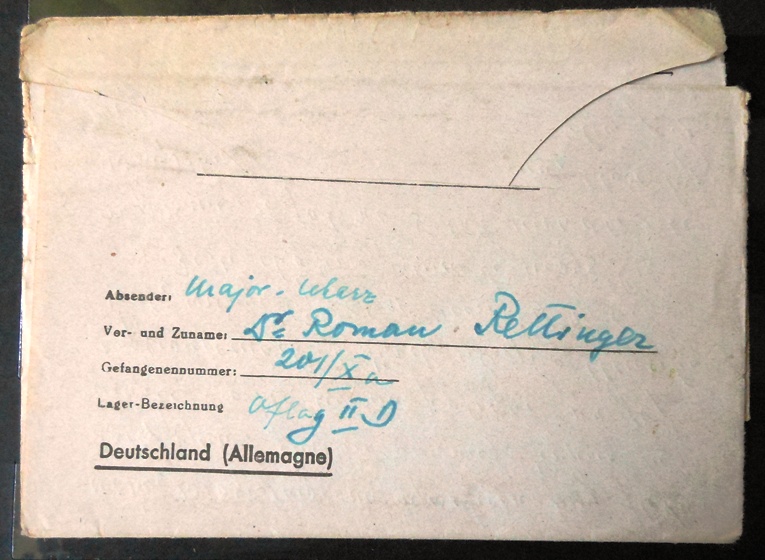 Absender: Major-lekarz
Vor- und Zuname: Dr Roman Rettinger
Gefangenennummer: 201/Xa
Lager-Bezeichnung Oflag II D
Deutschland (Allemagne)